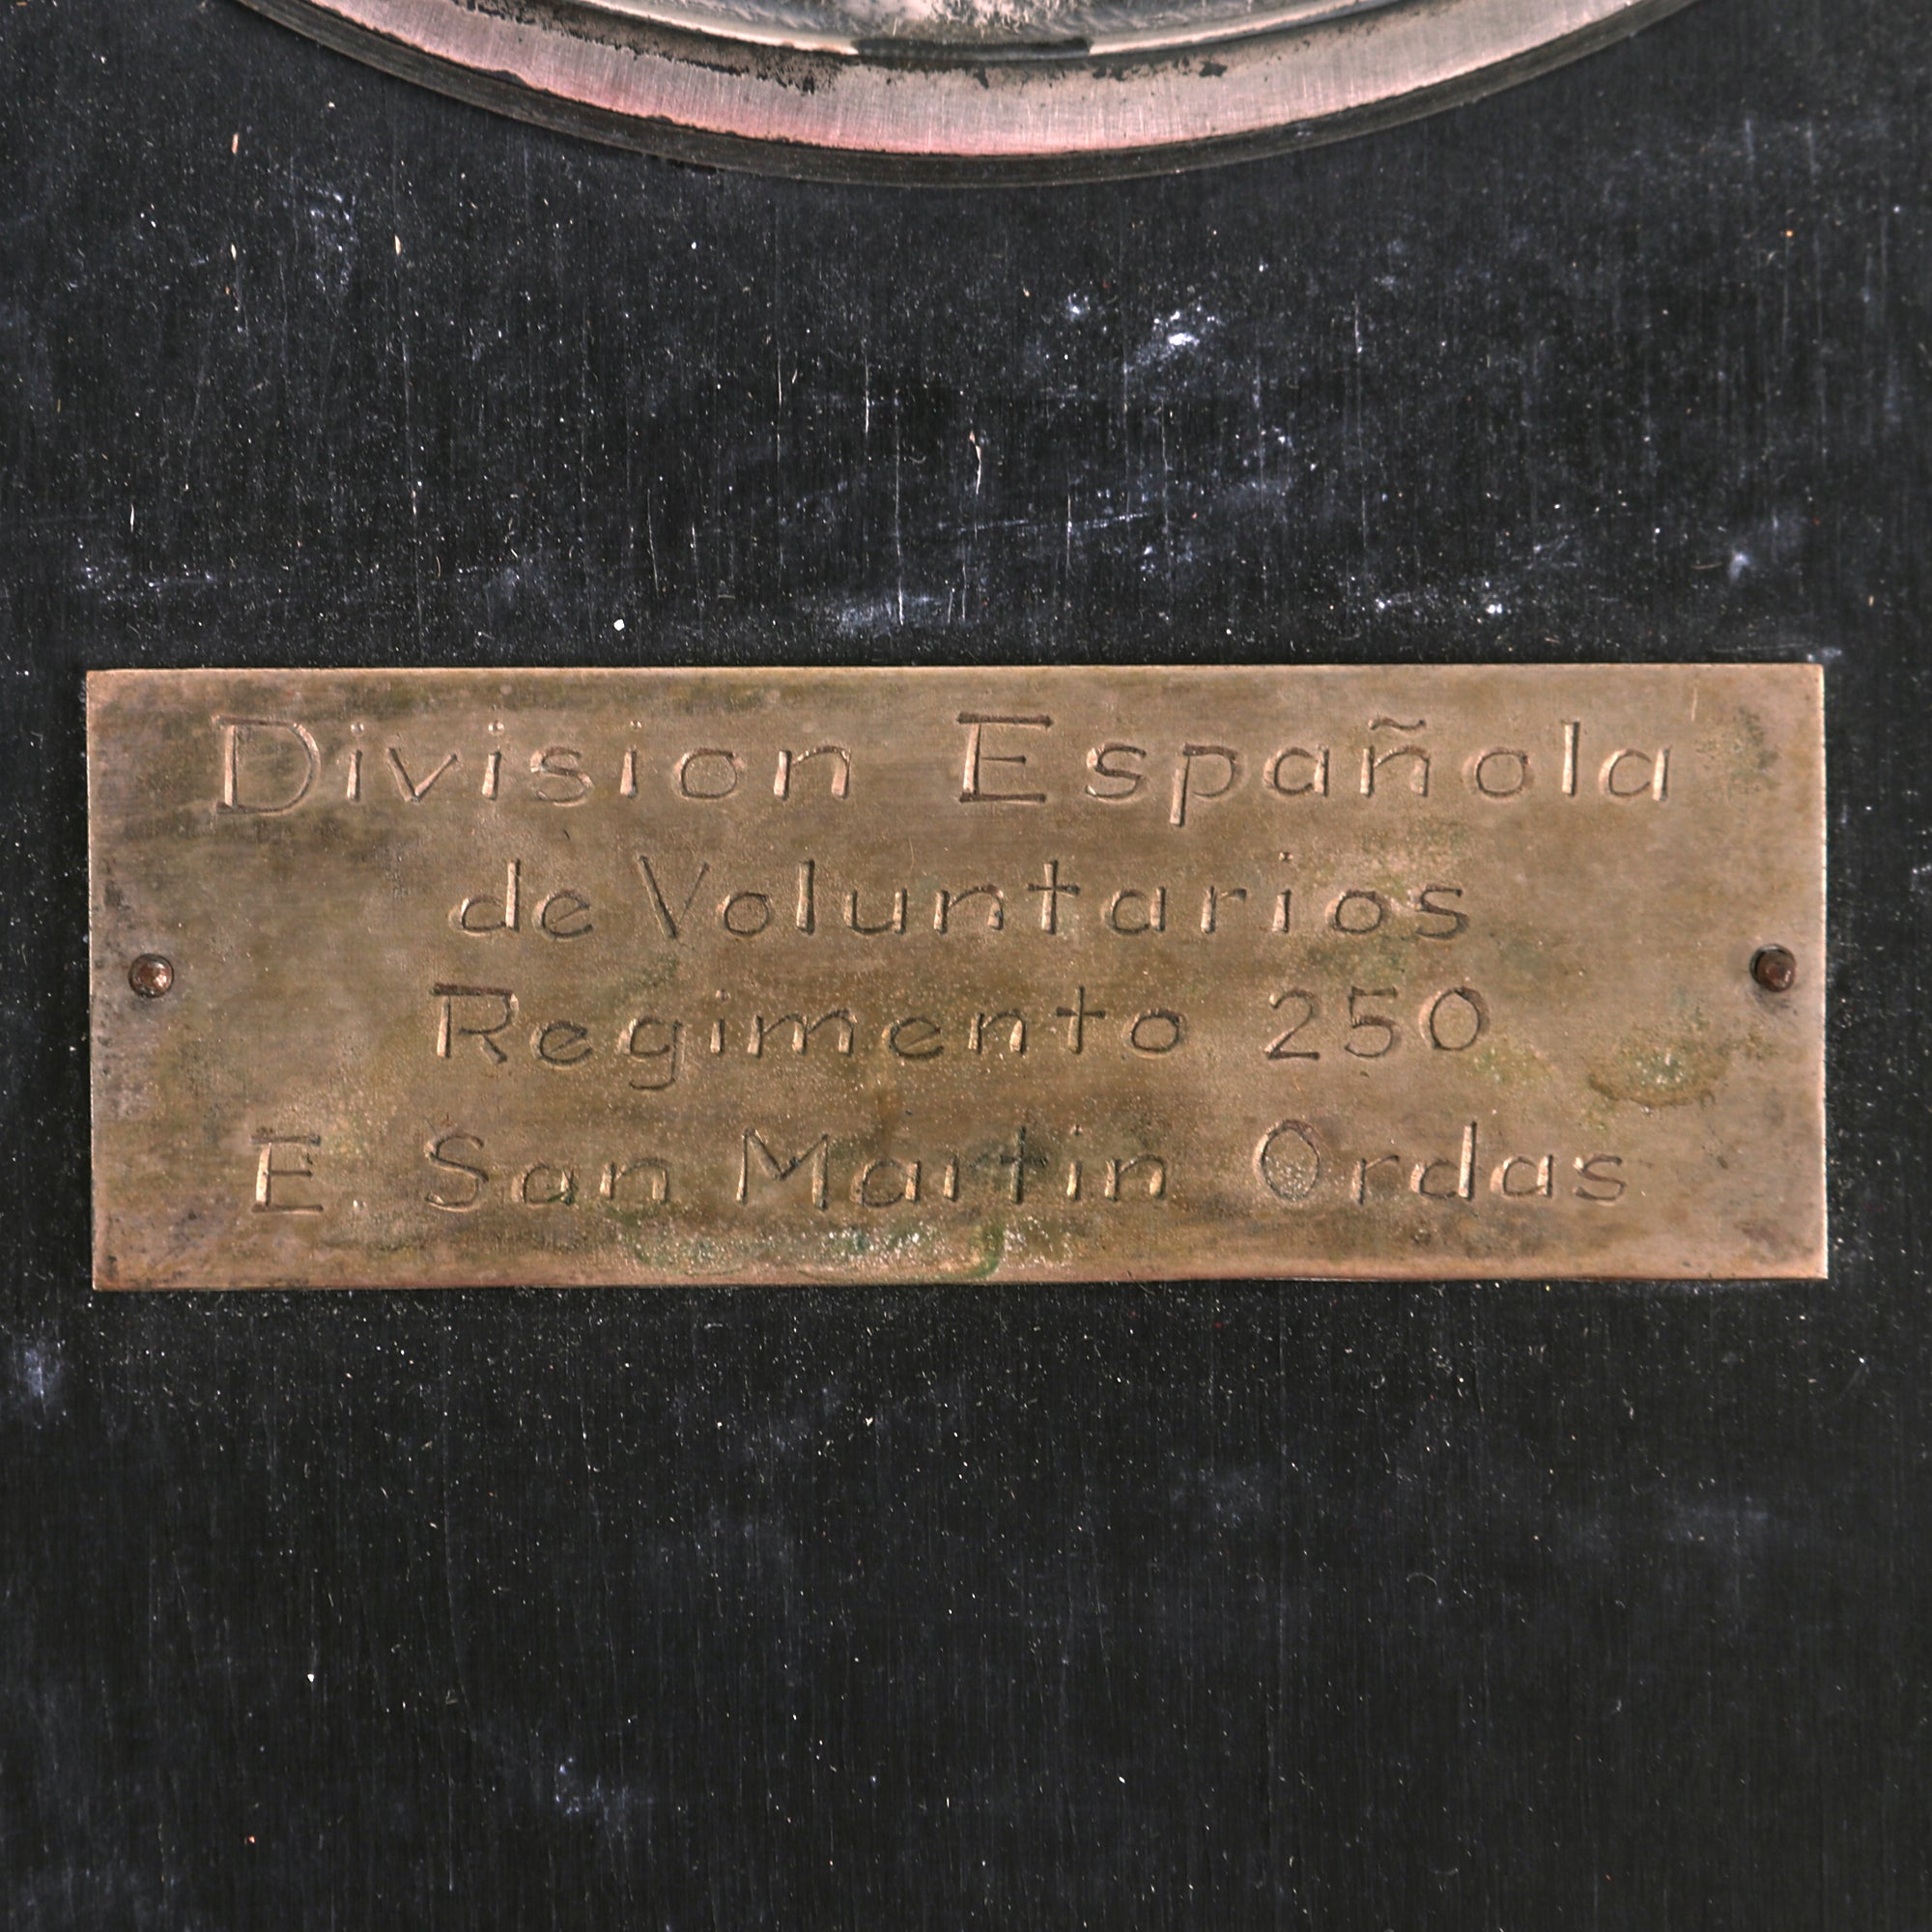 Division Española
de Voluntarios
Regimento 250
E. San Martin Ordas